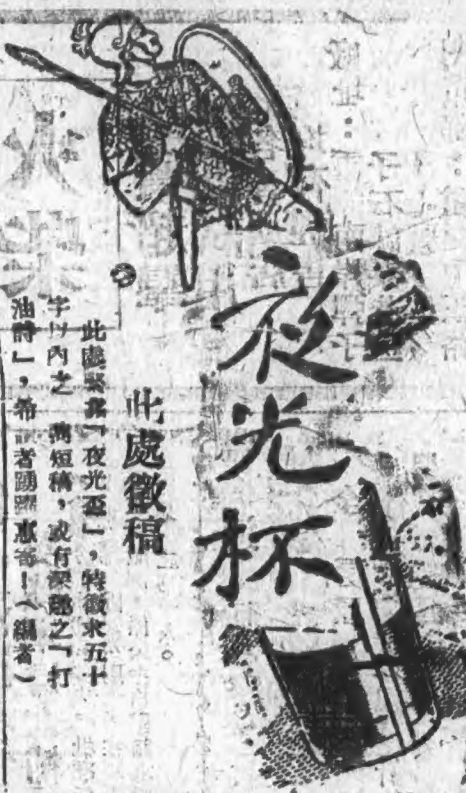 夜光杯
此處徵稿
此處緊靠「夜光盃」，特徵求五十
字以內之 短稿，或有深趣之「打
油詩」，希 者踴躍惠寄！（編者）